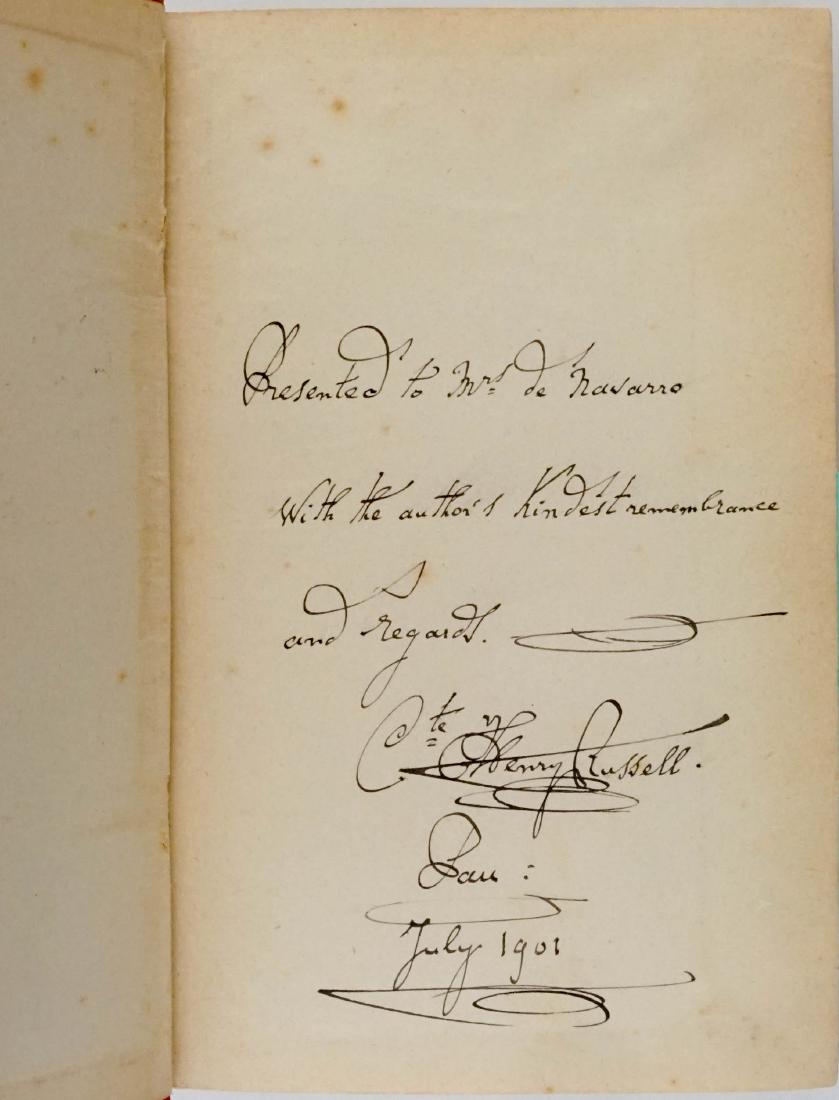 Presented to Mrs de Navarro
With the author's Kindest remembrance
and regards.
Cte Henry Russell.
Pau :
July 1901